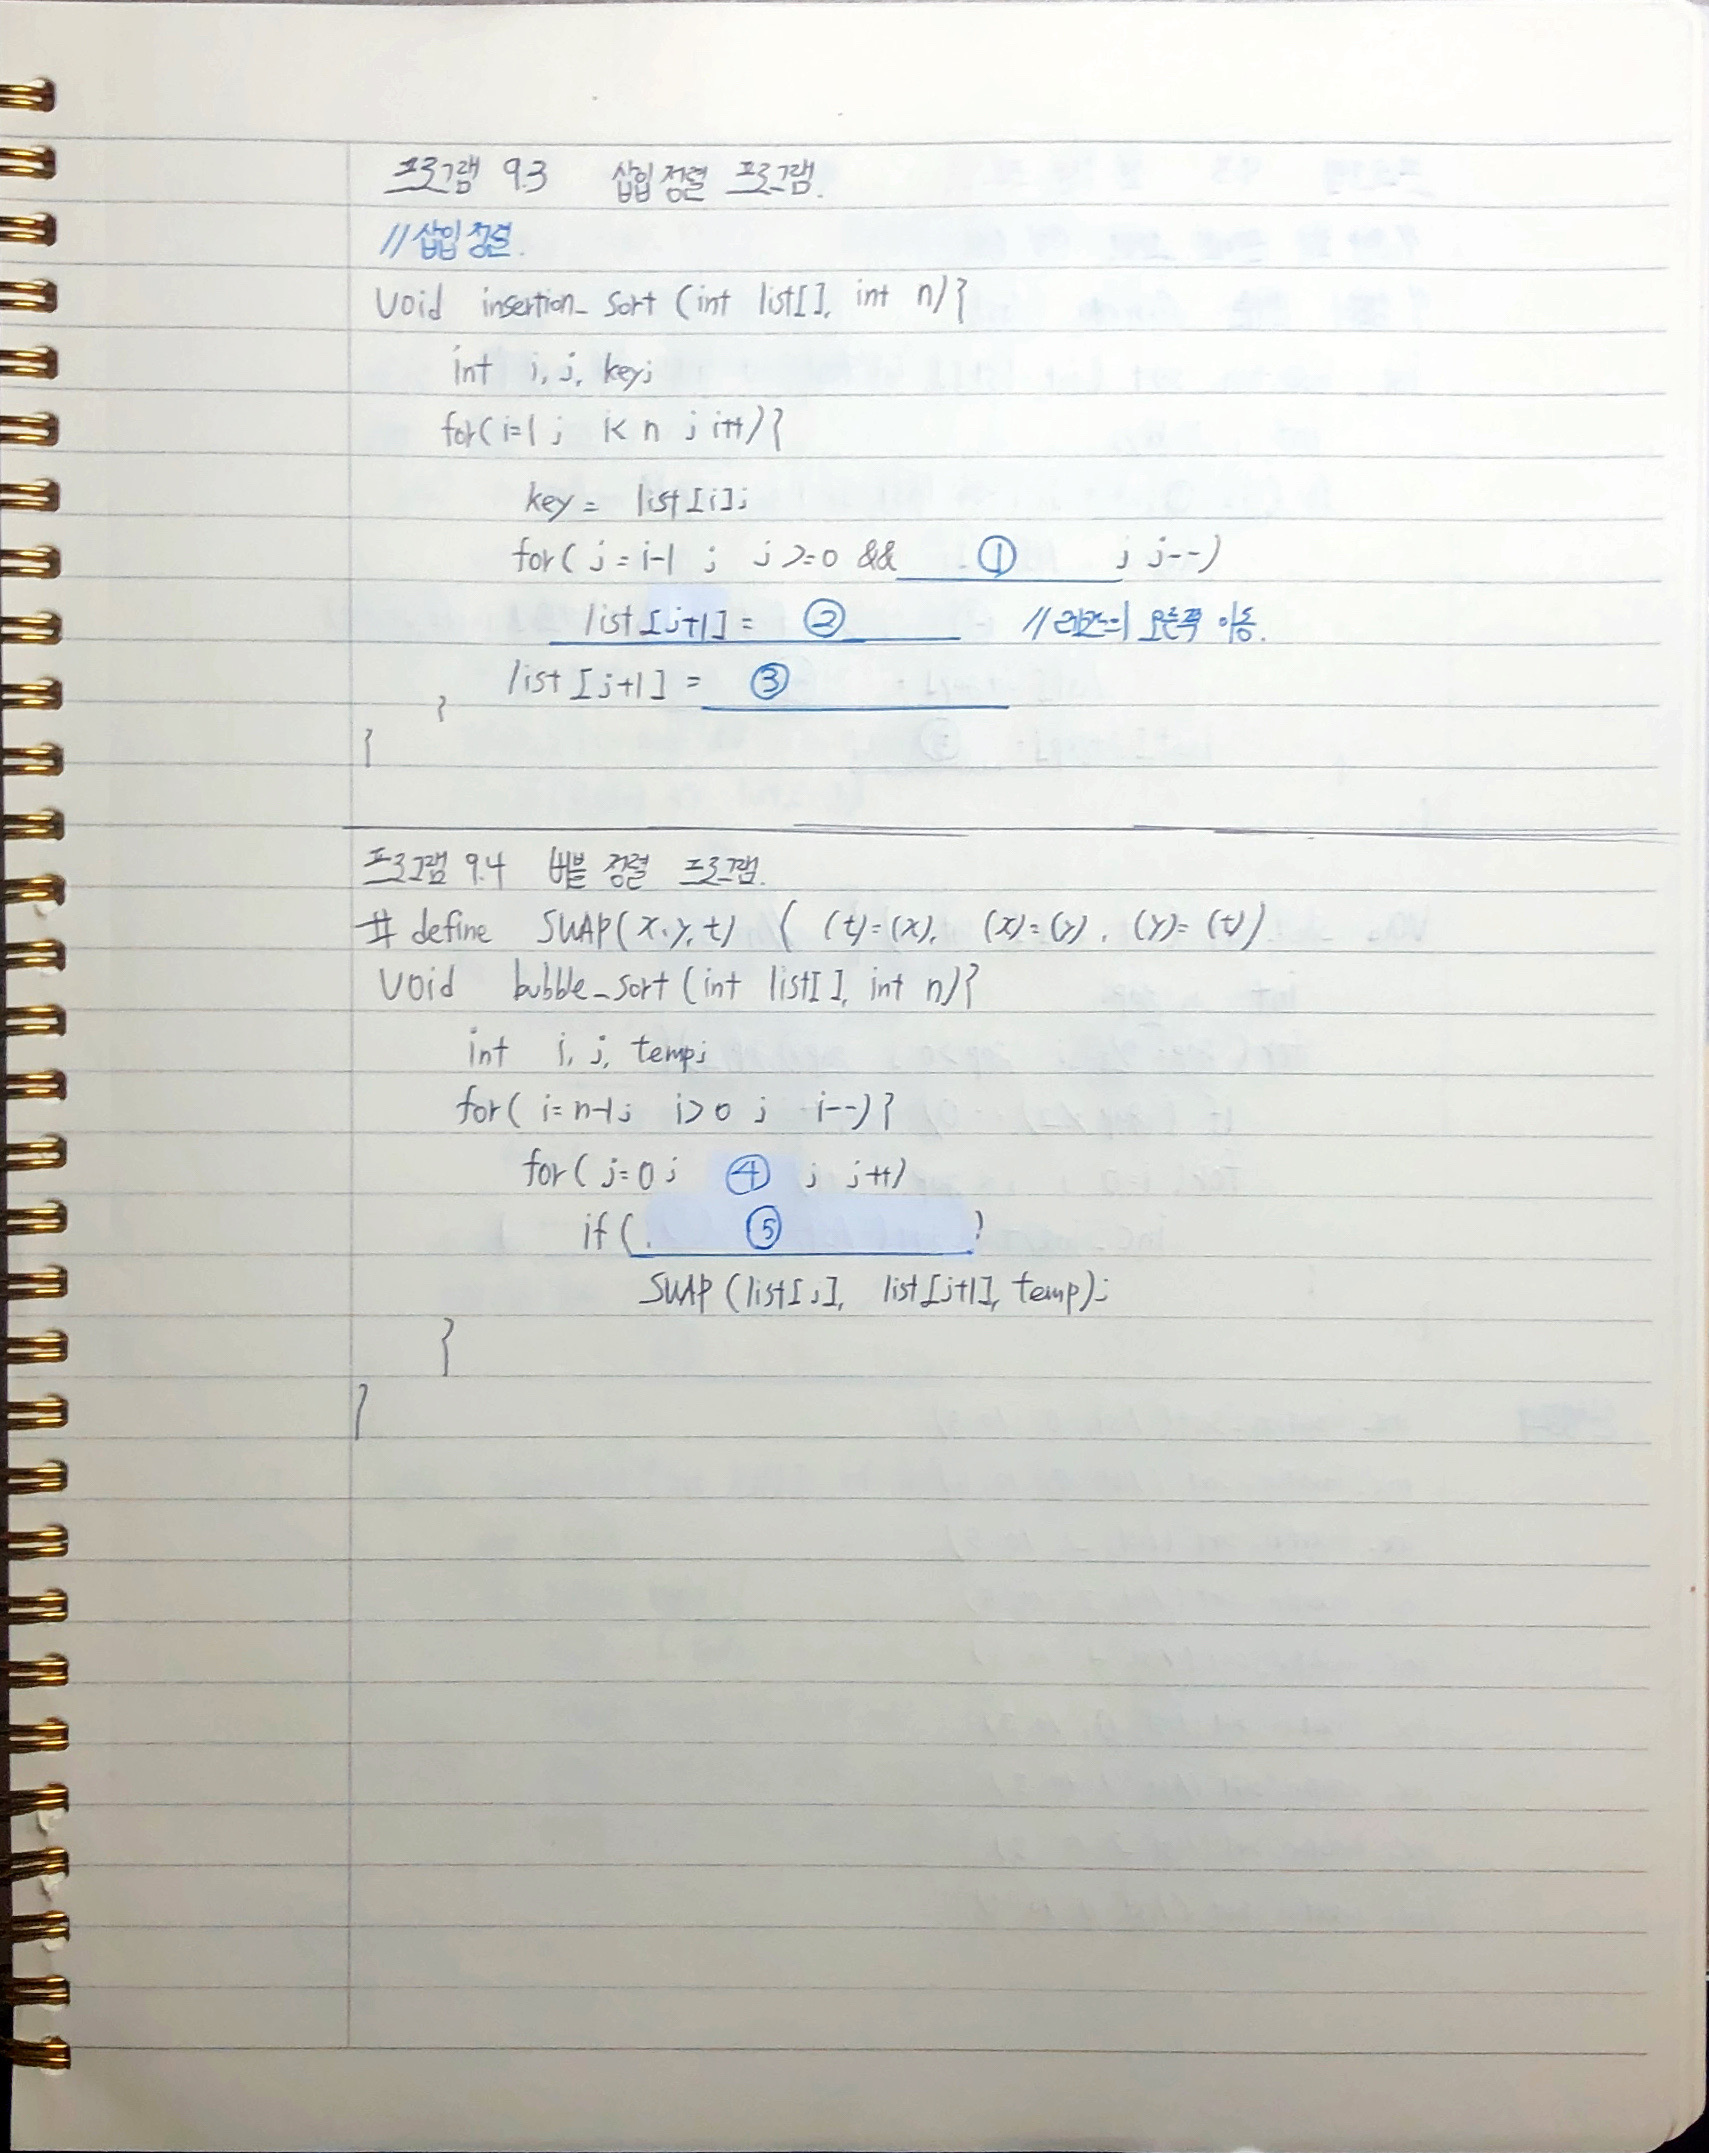 프로그램 9.3 삽입 정렬 프로그램.
//삽입 정렬.
void insertion_sort (int list[], int n){
int i, j, key;
for(i=1; i<n; i++){
key = list[i];
for( j=i-1 ; j>=0 && ① ; j--)
list[j+1] = ② //레코드의 오른쪽 이동.
list[j+1] = ③
}
}
프로그램 9.4 버블 정렬 프로그램.
# define SWAP(x,y,t) ( (t)=(x), (x)=(y), (y)=(t) )
void bubble_sort (int list[], int n){
int i, j, temp;
for( i=n-1; i>0 ; i--){
for( j=0; ④ ; j++)
if( ⑤ )
SWAP (list[j], list[j+1], temp);
}
}